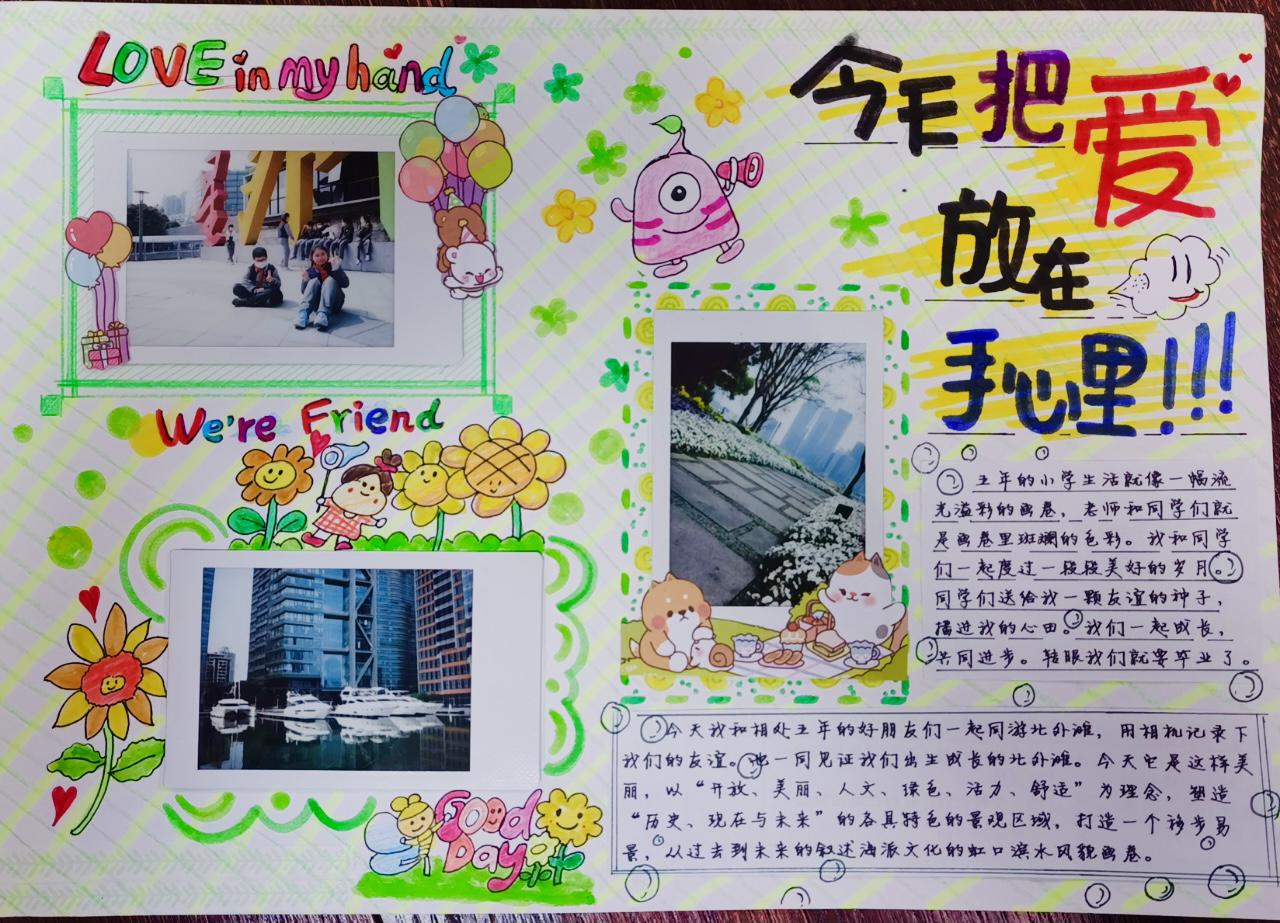 LOVE in my hand
We're Friend
Good
Day
今天把爱
放在
手心里!!!
五年的小学生活就像一幅流
光溢彩的画卷，老师和同学们就
是画卷里斑斓的色彩。我和同学
们一起度过一段段美好的岁月。
同学们送给我一颗友谊的种子，
播进我的心田。我们一起成长，
共同进步。转眼我们就要毕业了。
今天我和相处五年的好朋友们一起同游北外滩，用相机记录下
我们的友谊。也一同见证我们出生成长的北外滩。今天它是这样美
丽，以“开放、美丽、人文、绿色、活力、舒适”为理念，塑造
“历史、现在与未来”的各具特色的景观区域，打造一个移步易
景，从过去到未来的叙述海派文化的虹口滨水风貌画卷。